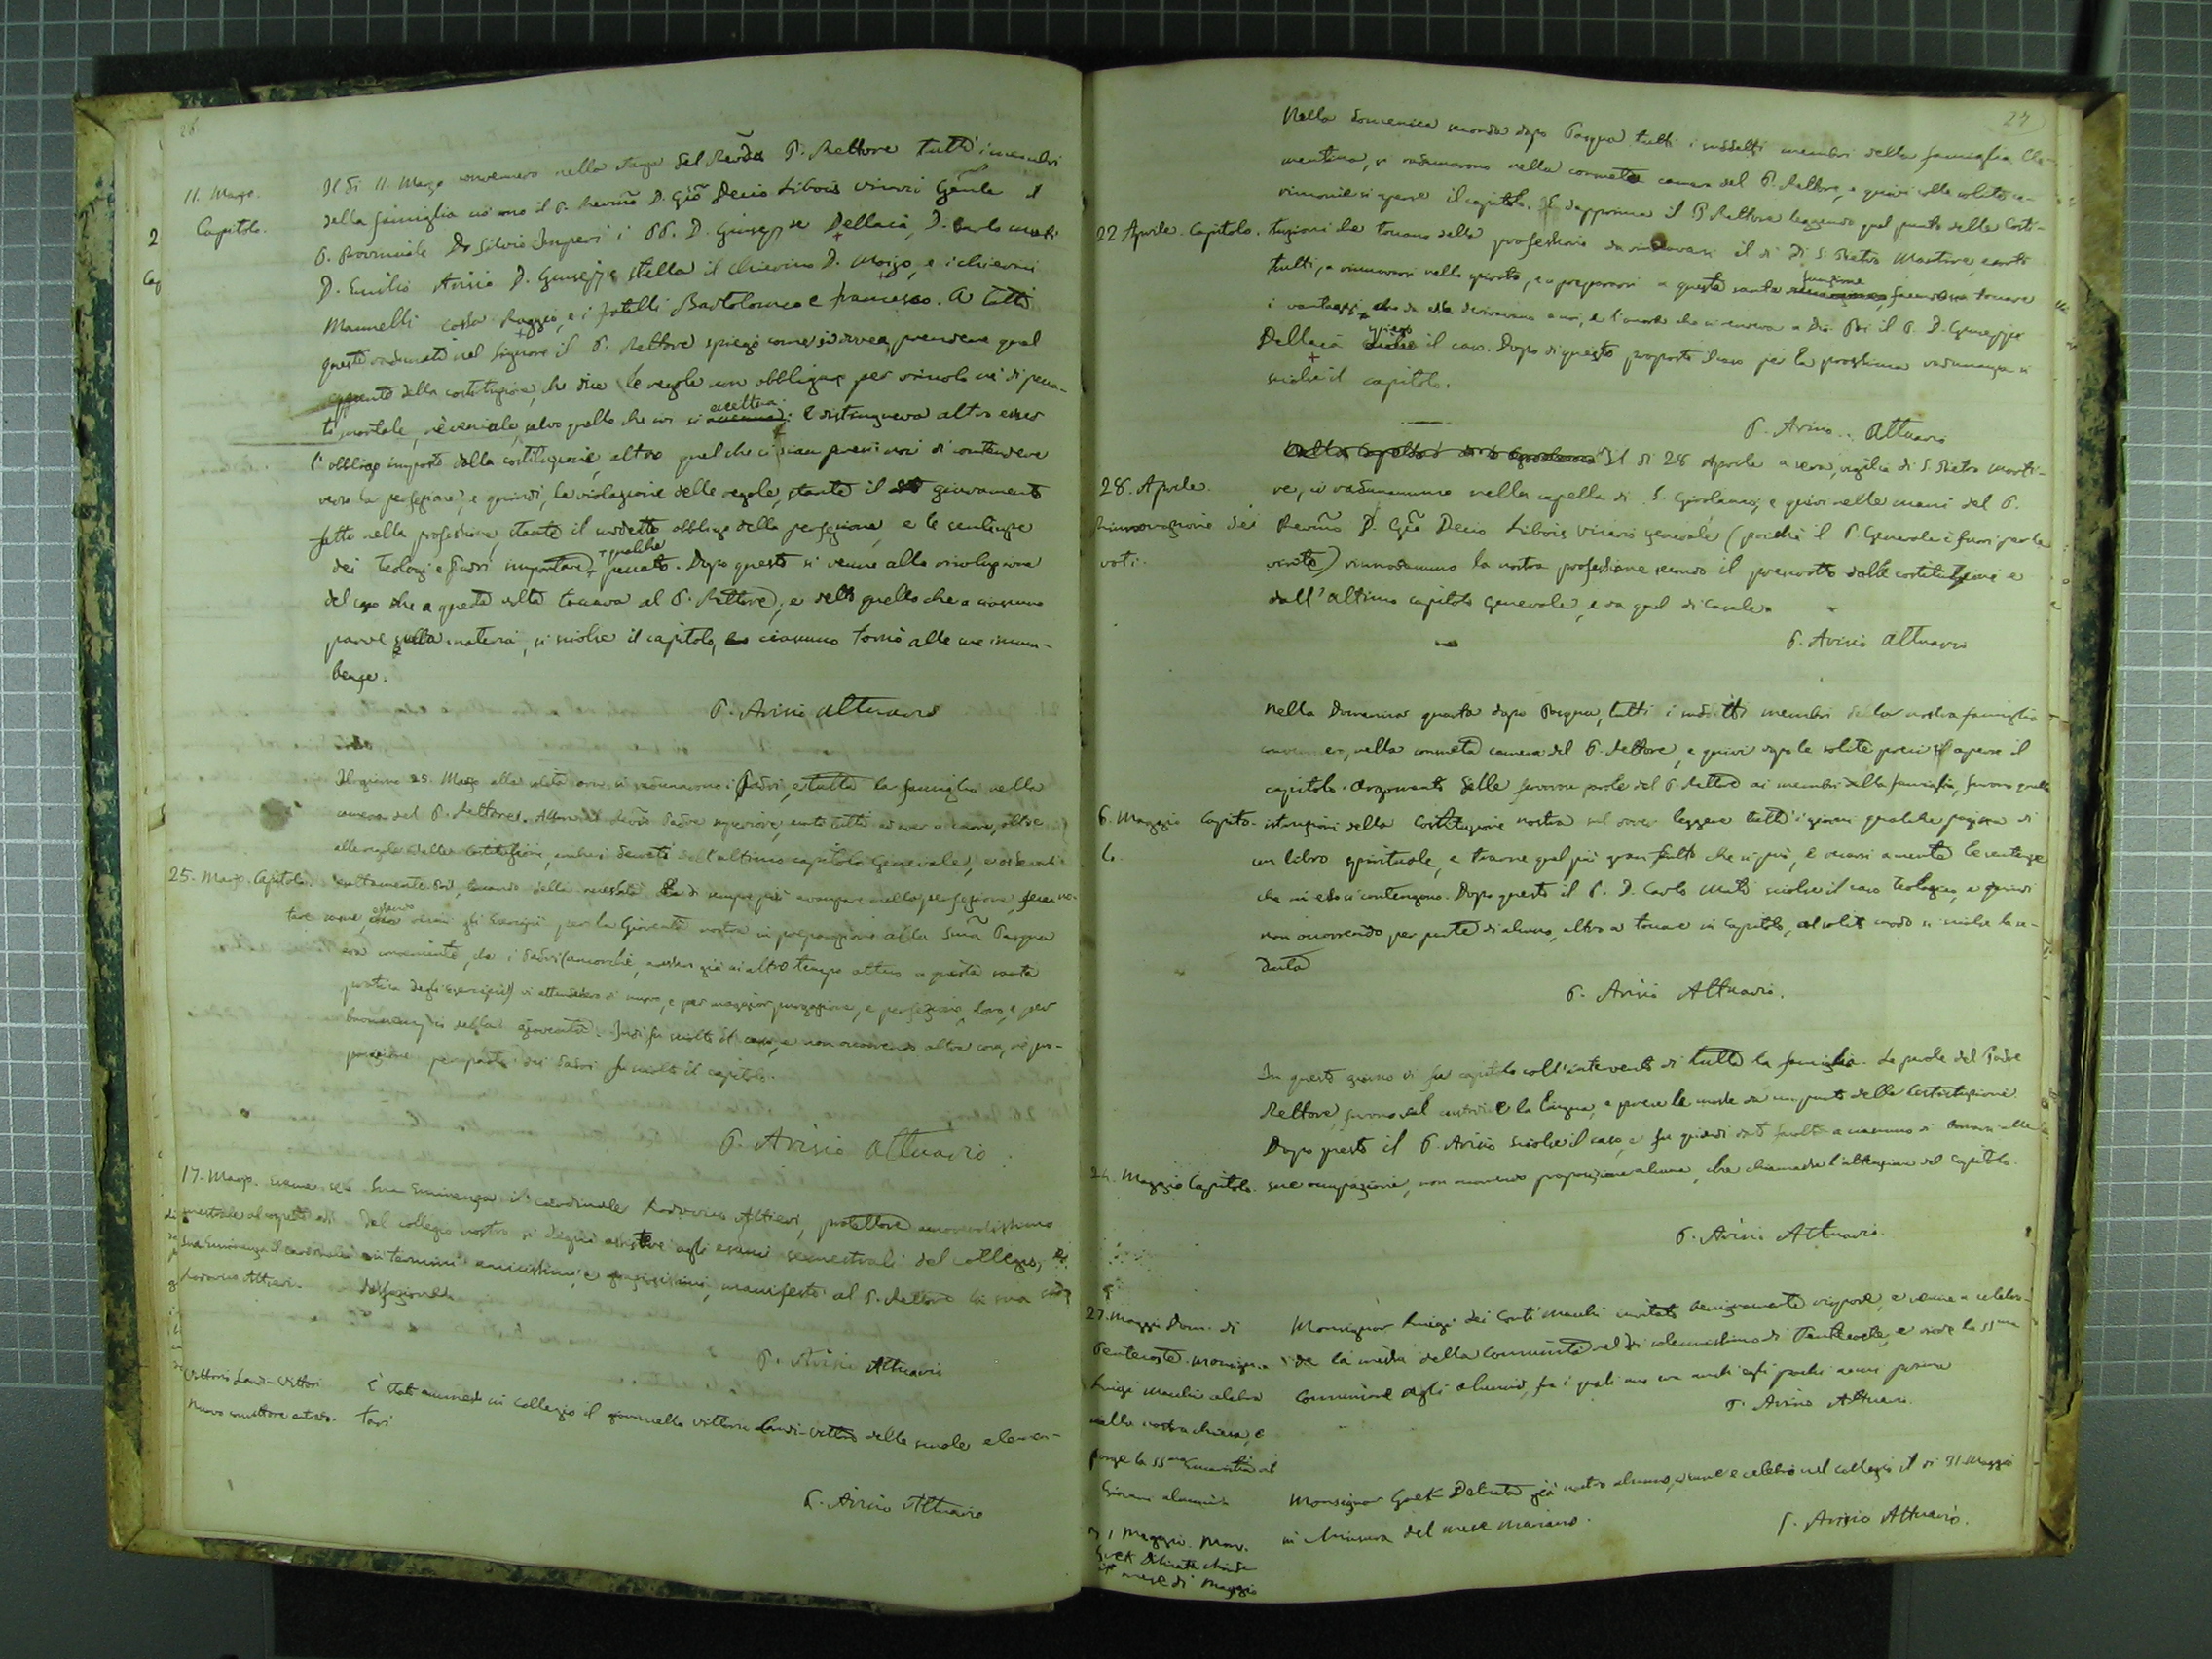 26
11. Marzo.
Capitolo.
Il dì 11 Marzo convennero nella stanza del Revdo P. Rettore tutti i membri
della famiglia ciò sono il P. Revmo D. Gio Decio Libois vicario Gnle il
P. Provinciale D. Silvio Imperi i PP. D. Giuseppe Dellacà, D. Carlo Muti
D. Emilio Arisio D. Giuseppe Stella il chierino D. Moizo, e i chierici
Mannelli Costa Raggio, e i fratelli Bartolomeo e francesco. A tutti
questi radunati nel Signore il P. Rettore spiegò come si dovea prendere quel
punto della costituzione, che dice le regole non obbligare per vincolo nè di pecca-
to mortale, nè veniale, salvo quello che ivi si eccettua. E distingueva altro esser
l'obbligo imposto dalla costituzione, altro quel che ci siam presi noi di contendere
verso la perfezione, e quindi, la violazione delle regole, stante il giuramento
fatto nella professione, stante il suddetto obbligo della perfezione, e le sentenze
dei Teologi e Padri importare qualche peccato. Dopo questo si venne alla risoluzione
del caso che a questa volta toccava al P. Rettore, e detto quello che a ciascuno
parve sulla materia, si sciolse il capitolo, e ciascuno tornò alle sue incum-
benze.
P. Arisio attuario
25. Marzo. Capitolo.
Il giorno 25. Marzo alla solita ora si radunarono i Padri, e tutta la famiglia nella
camera del P. Rettore. Il Revdo Padre superiore, esortò tutti ad aver a cuore, oltre
alle regole delle Costituzioni, anche i decreti dell'ultimo capitolo Generale, e osservarli
esattamente. Poi, toccando della necessità di sempre più avanzare nella perfezione, fece no-
tare come, essendo vicini gli Esercizii per la Gioventù nostra in preparazione alla Sma Pasqua
era conveniente, che i Padri (ancorchè avesser già in altro tempo atteso a questa santa
pratica degli esercizii) vi attendessero di nuovo, e per maggior purgazione, e perfezione loro, e per
buon esempio della gioventù. Indi fu sciolto il caso, e non occorrendo altra cosa, nè pro-
posizione per parte dei Padri fu sciolto il capitolo.
P. Arisio attuario.
17. Marzo. esame se-
mestrale al cospetto di
Sua Eminenza il cardinale
Lodovico Altieri.
Sua Eminenza il cardinale Lodovico Altieri, protettore amorevolissimo
del collegio nostro si degnò assistere agli esami semestrali del collegio, e
in termini amicissimi, e graziosissimi, manifestò al P. Rettore la sua sod-
disfazione.
P. Arisio Attuario
Vittorio Landi-Vittori
Nuovo convittore entrato.
È stato ammesso in collegio il giovinetto Vittorio Landi-Vittori delle scuole elemen-
tari
P. Arisio Attuario
27
22 Aprile. Capitolo.
Nella domenica seconda dopo Pasqua tutti i suddetti membri della famiglia Cle-
mentina, si radunarono nella consueta camera del P. Rettore, e quivi colle solite ce-
rimonie si aperse il capitolo. E dapprima il P. Rettore leggendo quel punto delle Costi-
tuzioni che toccano della professione da rinnovarsi il dì di S. Pietro Martire, esortò
tutti, a rinnovarsi nello spirito, e a prepararsi a questa santa funzione, facendo toccare
i vantaggi che da essa derivavano a noi, e l'onore che ne veniva a Dio. Poi il P. D. Giuseppe
Dellacà spiegò il caso. Dopo di questo proposto il caso per la prossima radunanza si
sciolse il capitolo.
P. Arisio. Attuario
28. Aprile.
Rinnovazione dei
voti.
Il dì 28 Aprile a sera, vigilia di S. Pietro marti-
re, ci radunammo nella capella di S. Girolamo, e quivi nelle mani del P.
Revmo D. Gio Decio Libois vicario generale (poichè il P. Generale è fuori per la
visita) rinnovammo la nostra professione secondo il prescritto dalle costituzioni e
dall'altimo capitolo Generale, e da quel di Casale.
P. Arisio attuario
6. Maggio Capito-
lo.
Nella Domenica quarta dopo Pasqua, tutti i suddetti membri della nostra famiglia
convennero, nella consueta camera del P. Rettore, e quivi dopo le solite preci si aperse il
capitolo. Argomento delle fervorose parole del P. Rettore ai membri della famiglia, furono quelle
istruzioni della Costituzione nostra sul dover leggere tutt'i giorni qualche pagina di
un libro spirituale, e trarne quel più gran frutto che si può, e recarsi a mente le sentenze
che in esso si contengono. Dopo questo il P. D. Carlo Muti sciolse il caso teologico, e quindi
non occorrendo per parte di alcuno, altro a toccare in Capitolo, al solito modo si sciolse la se-
duta
P. Arisio Attuario.
24. Maggio Capitolo.
In questo giorno si fu capitolo coll'intervento di tutta la famiglia. Le parole del Padre
Rettore, furono sul custodire la lingua, e prese le mosse da un punto delle Costituzioni.
Dopo questo il P. Arisio sciolse il caso, e fu quindi data facoltà a ciascuno di tornare alle
sue occupazioni, non occorrendo proposizione alcuna, che chiamasse l'attenzione del Capitolo.
P. Arisio Attuario.
27. Maggio Dom. di
Pentecoste. Monsignor
Luigi Macchi celebra
nella nostra chiesa, e
porge la SSma Eucaristia ai
Giovani alunni
Monsignor Luigi dei Conti Macchi invitato benignamente rispose, e venne a celebra-
re la messa della Comunità nel dì solennissimo di Pentecoste, e diede la SSma
Comunione agli alunni, fra i quali uno era anch'egli pochi anni prima
P. Arisio Attuario.
31 Maggio. Mons.
Goek Delicata chiude
il mese di Maggio
Monsignor Goek Delicata già nostro alunno, venne e celebrò nel collegio il dì 31. Maggio
in chiusura del mese mariano.
P. Arisio Attuario.